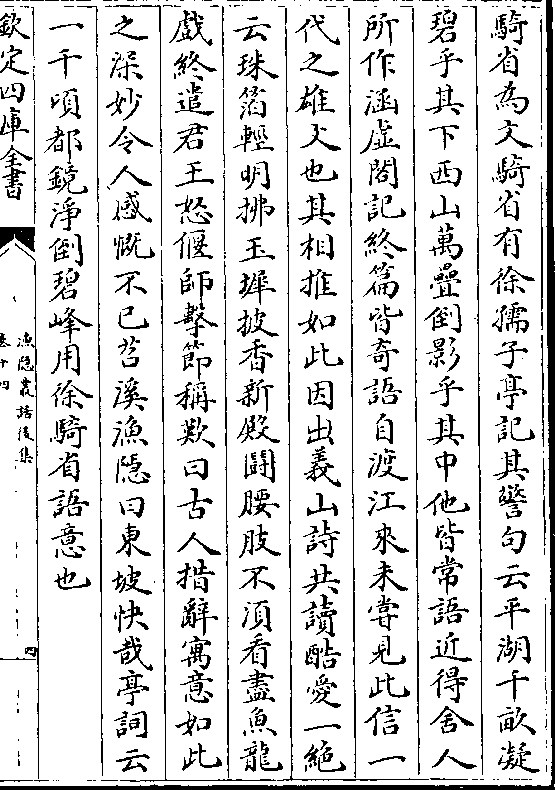 騎省為文騎省有徐孺子亭記其警句云平湖千畝凝
碧乎其下西山萬疊倒影乎其中他皆常語近得舍人
所作涵虛閣記終篇皆奇語自渡江來未嘗見此信一
代之雄文也其相推如此因出義山詩共讀酷愛一絶
云珠箔輕明拂玉墀披香新殿鬬腰肢不須看盡魚龍
戲終遣君王怒偃師擊節稱歎曰古人措辭寓意如此
之深妙令人感慨不已苕溪漁隱曰東坡快哉亭詞云
一千頃都鏡淨倒碧峰用徐騎省語意也
欽定四庫全書
漁隱叢話後集
卷十四
四